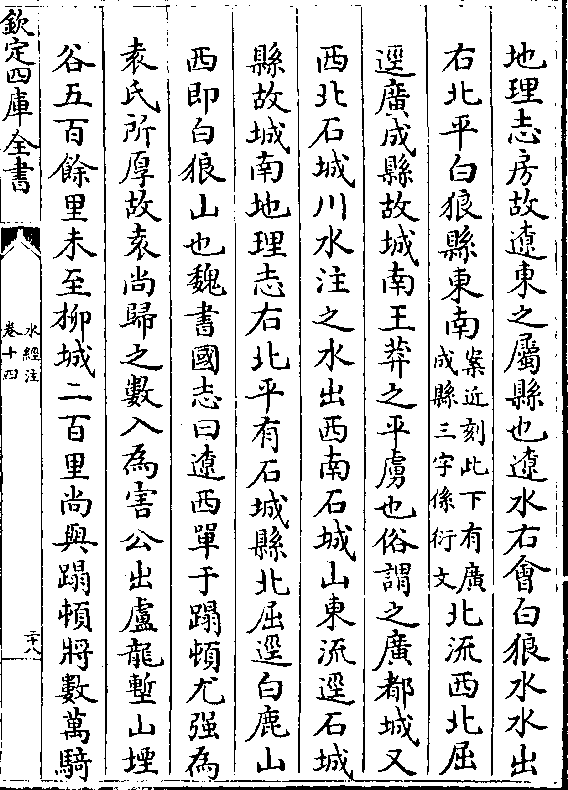 地理志房故遼東之屬縣也遼水右會白狼水水出
右北平白狼縣東南案近刻此下有廣成縣三字係衍文北流西北屈
逕廣成縣故城南王莽之平虜也俗謂之廣都城又
西北石城川水注之水出西南石城山東流逕石城
縣故城南地理志右北平有石城縣北屈逕白鹿山
西即白狼山也魏書國志曰遼西單于蹋頓尤强為
袁氏所厚故袁尚歸之數入為害公出盧龍塹山堙
谷五百餘里未至柳城二百里尚與蹋頓將數萬騎
欽定四庫全書
水經注
卷十四
二十八